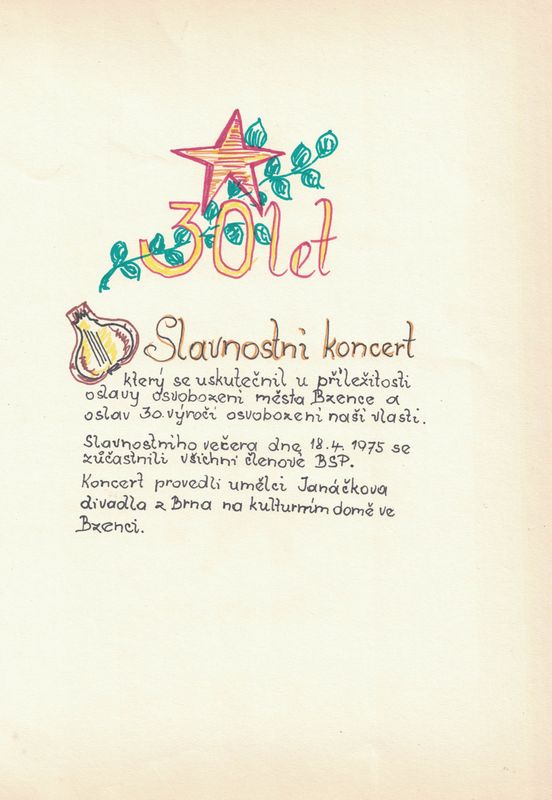 30 let
Slavnostní koncert
který se uskutečnil u příležitosti
oslavy osvobození města Bzence a
oslav 30. výročí osvobození naší vlasti.
Slavnostního večera dne 18.4. 1975 se
zúčastnili všichni členové BSP.
Koncert provedli umělci Janáčkova
divadla z Brna na kulturním domě ve
Bzenci.